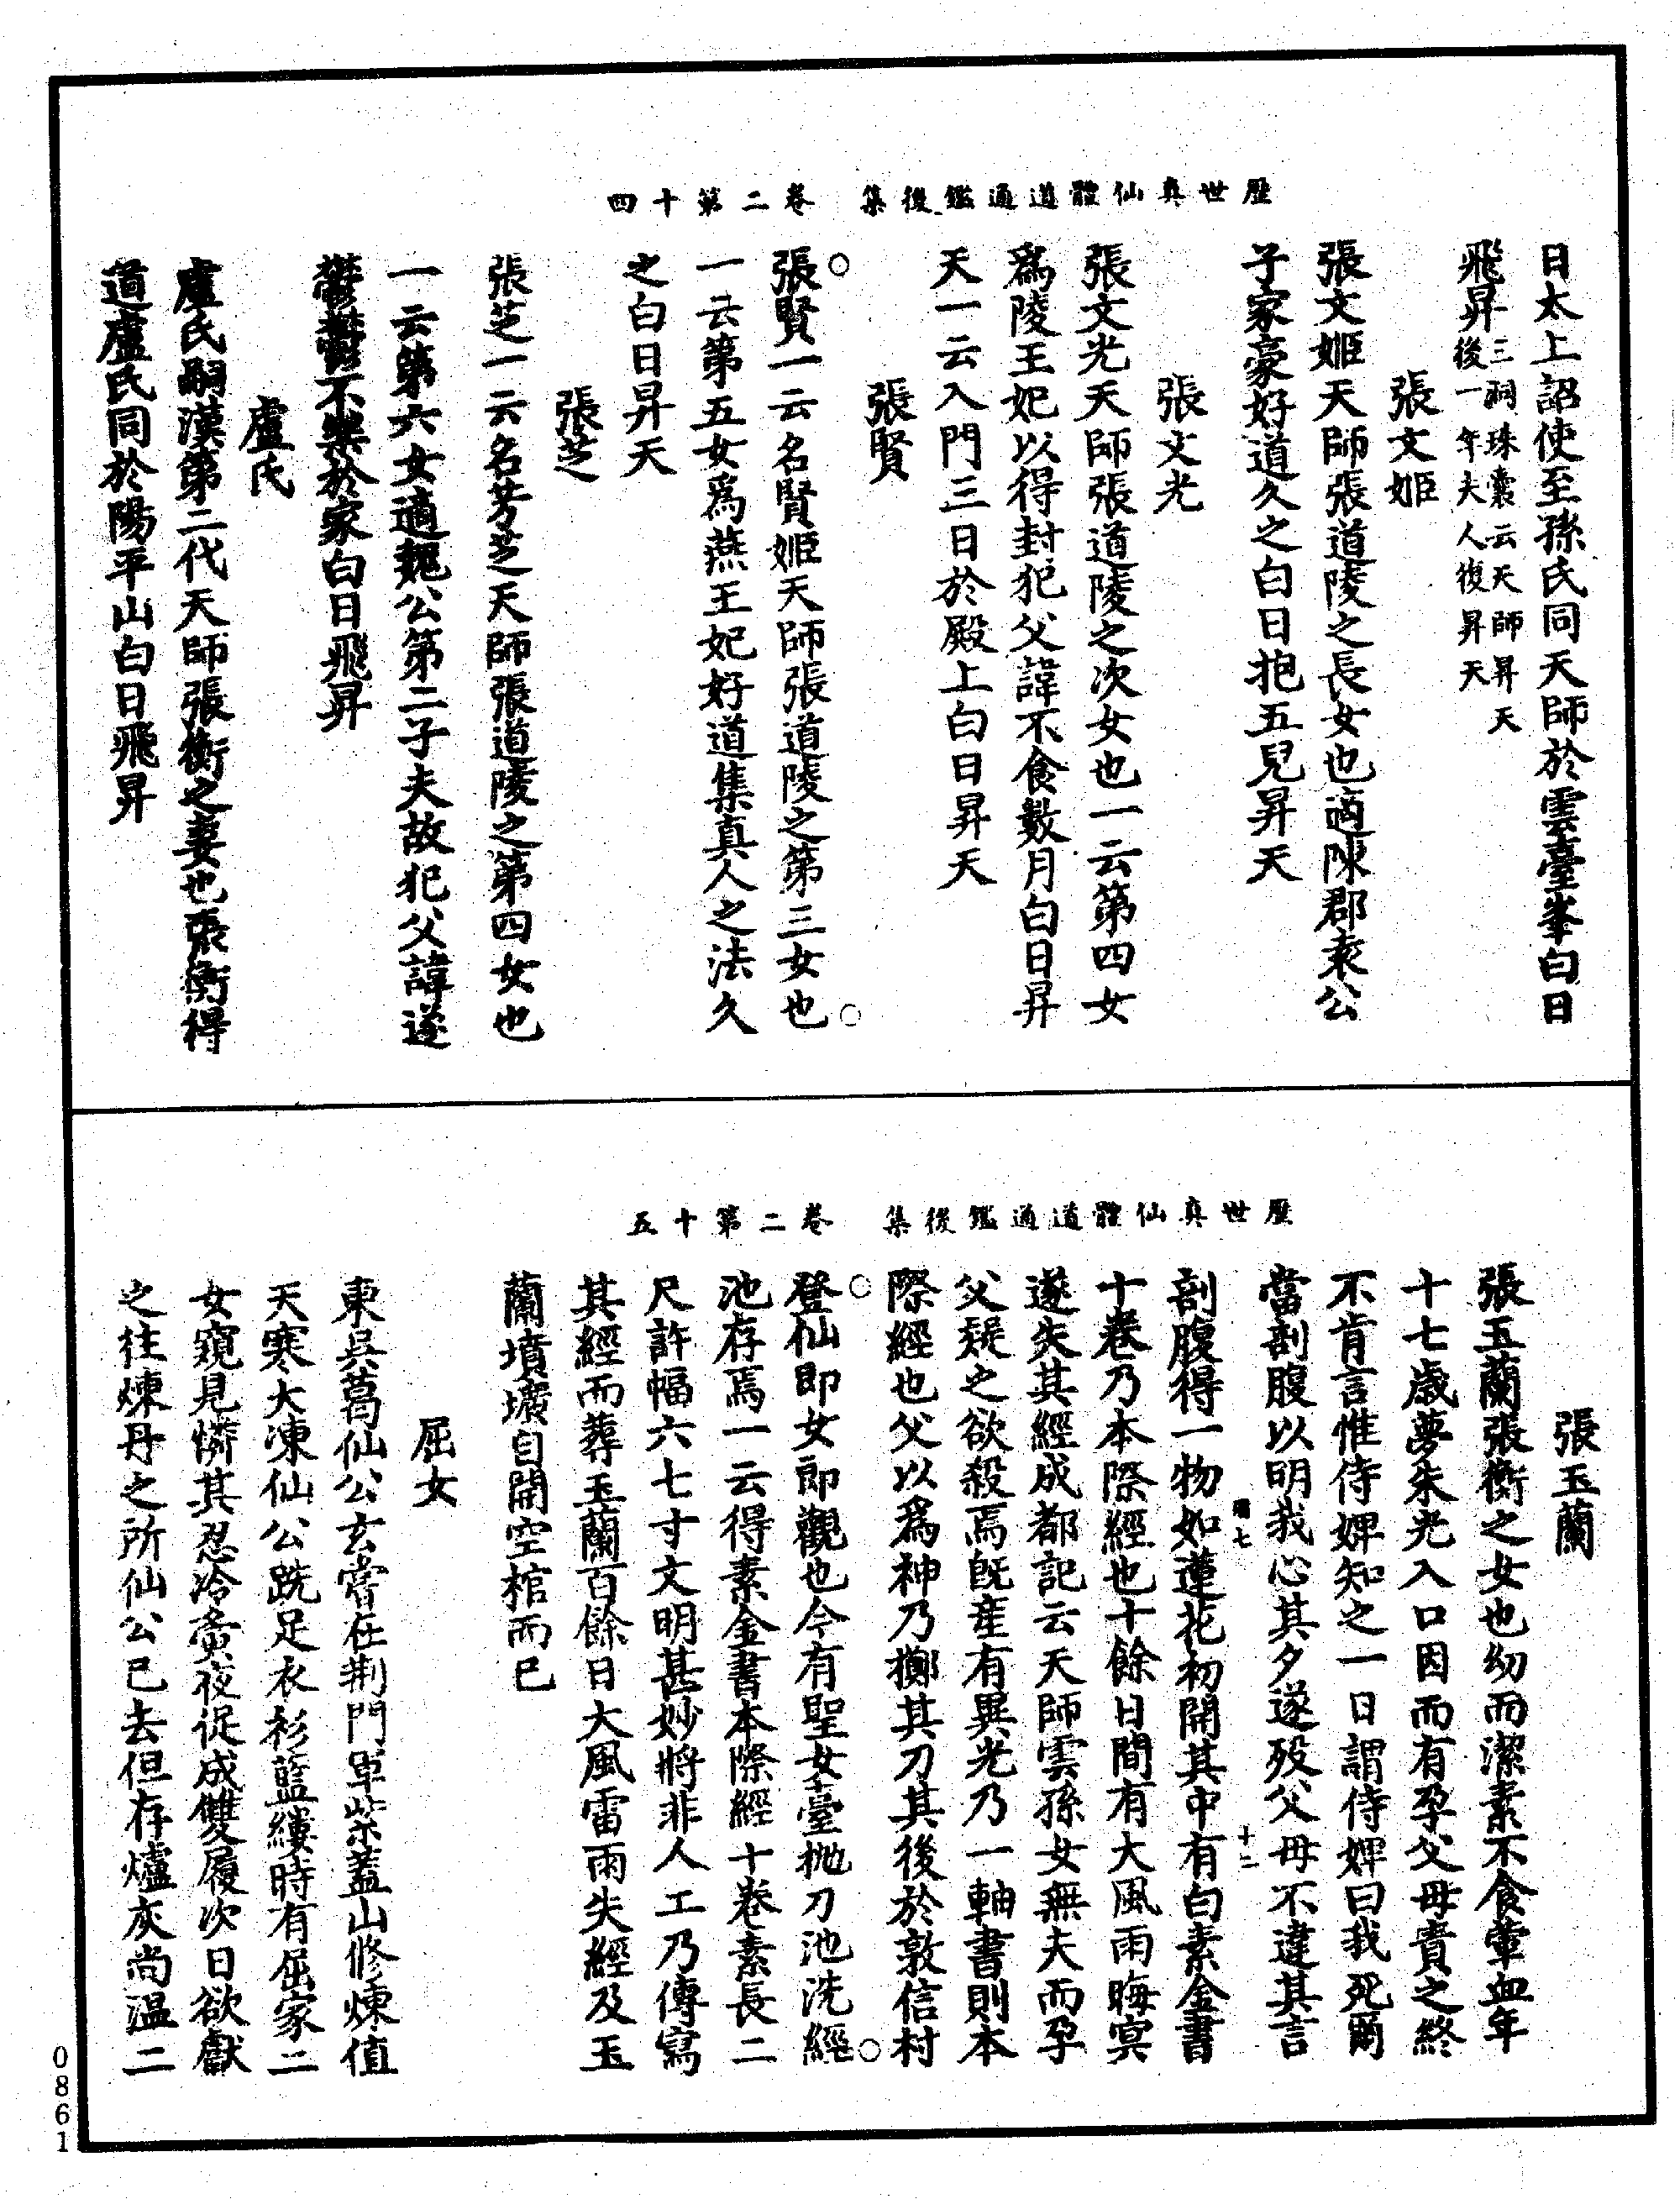 歷世真仙體道通鑑後集　卷二第十四
日太上詔使至孫氏同天師於雲臺峯白日
飛昇三洞珠囊云天師昇天後一年夫人復昇天
張文姬
張文姬天師張道陵之長女也適陳郡袁公
子家豪好道久之白日抱五兒昇天
張文光
張文光天師張道陵之次女也一云第四女
爲陵王妃以得封犯父諱不食數月白日昇
天一云入門三日於殿上白日昇天
張賢
張賢一云名賢姬天師張道陵之第三女也
一云第五女爲燕王妃好道集真人之法久
之白日昇天
張芝
張芝一云名芳芝天師張道陵之第四女也
一云第六女適魏公第二子夫故犯父諱遂
鬱鬱不樂於家白日飛昇
盧氏
盧氏嗣漢第二代天師張衡之妻也張衡得
道盧氏同於陽平山白日飛昇
歷世真仙體道通鑑後集　卷二第十五
張玉蘭
張玉蘭張衡之女也幼而潔素不食葷血年
十七歲夢朱光入口因而有孕父母責之終
不肯言惟侍婢知之一日謂侍婢曰我死爾
當剖腹以明我心其夕遂歿父母不違其言
七　十二
剖腹得一物如蓮花初開其中有白素金書
十卷乃本際經也十餘日間有大風雨晦冥
遂失其經成都記云天師雲孫女無夫而孕
父疑之欲殺焉旣産有異光乃一軸書則本
際經也父以爲神乃擲其刀其後於敦信村
登仙即女郎觀也今有聖女臺抛刀池洗經
池存焉一云得素金書本際經十卷素長二
尺許幅六七寸文明甚妙將非人工乃傳寫
其經而葬玉蘭百餘日大風雷雨失經及玉
蘭墳壙自開空棺而已
屈女
東吳葛仙公玄嘗在荆門軍紫蓋山修煉值
天寒大凍仙公跣足衣衫藍縷時有屈家二
女窺見憐其忍冷夤夜促成雙履次日欲獻
之往煉丹之所仙公已去但存爐灰尚温二
0861